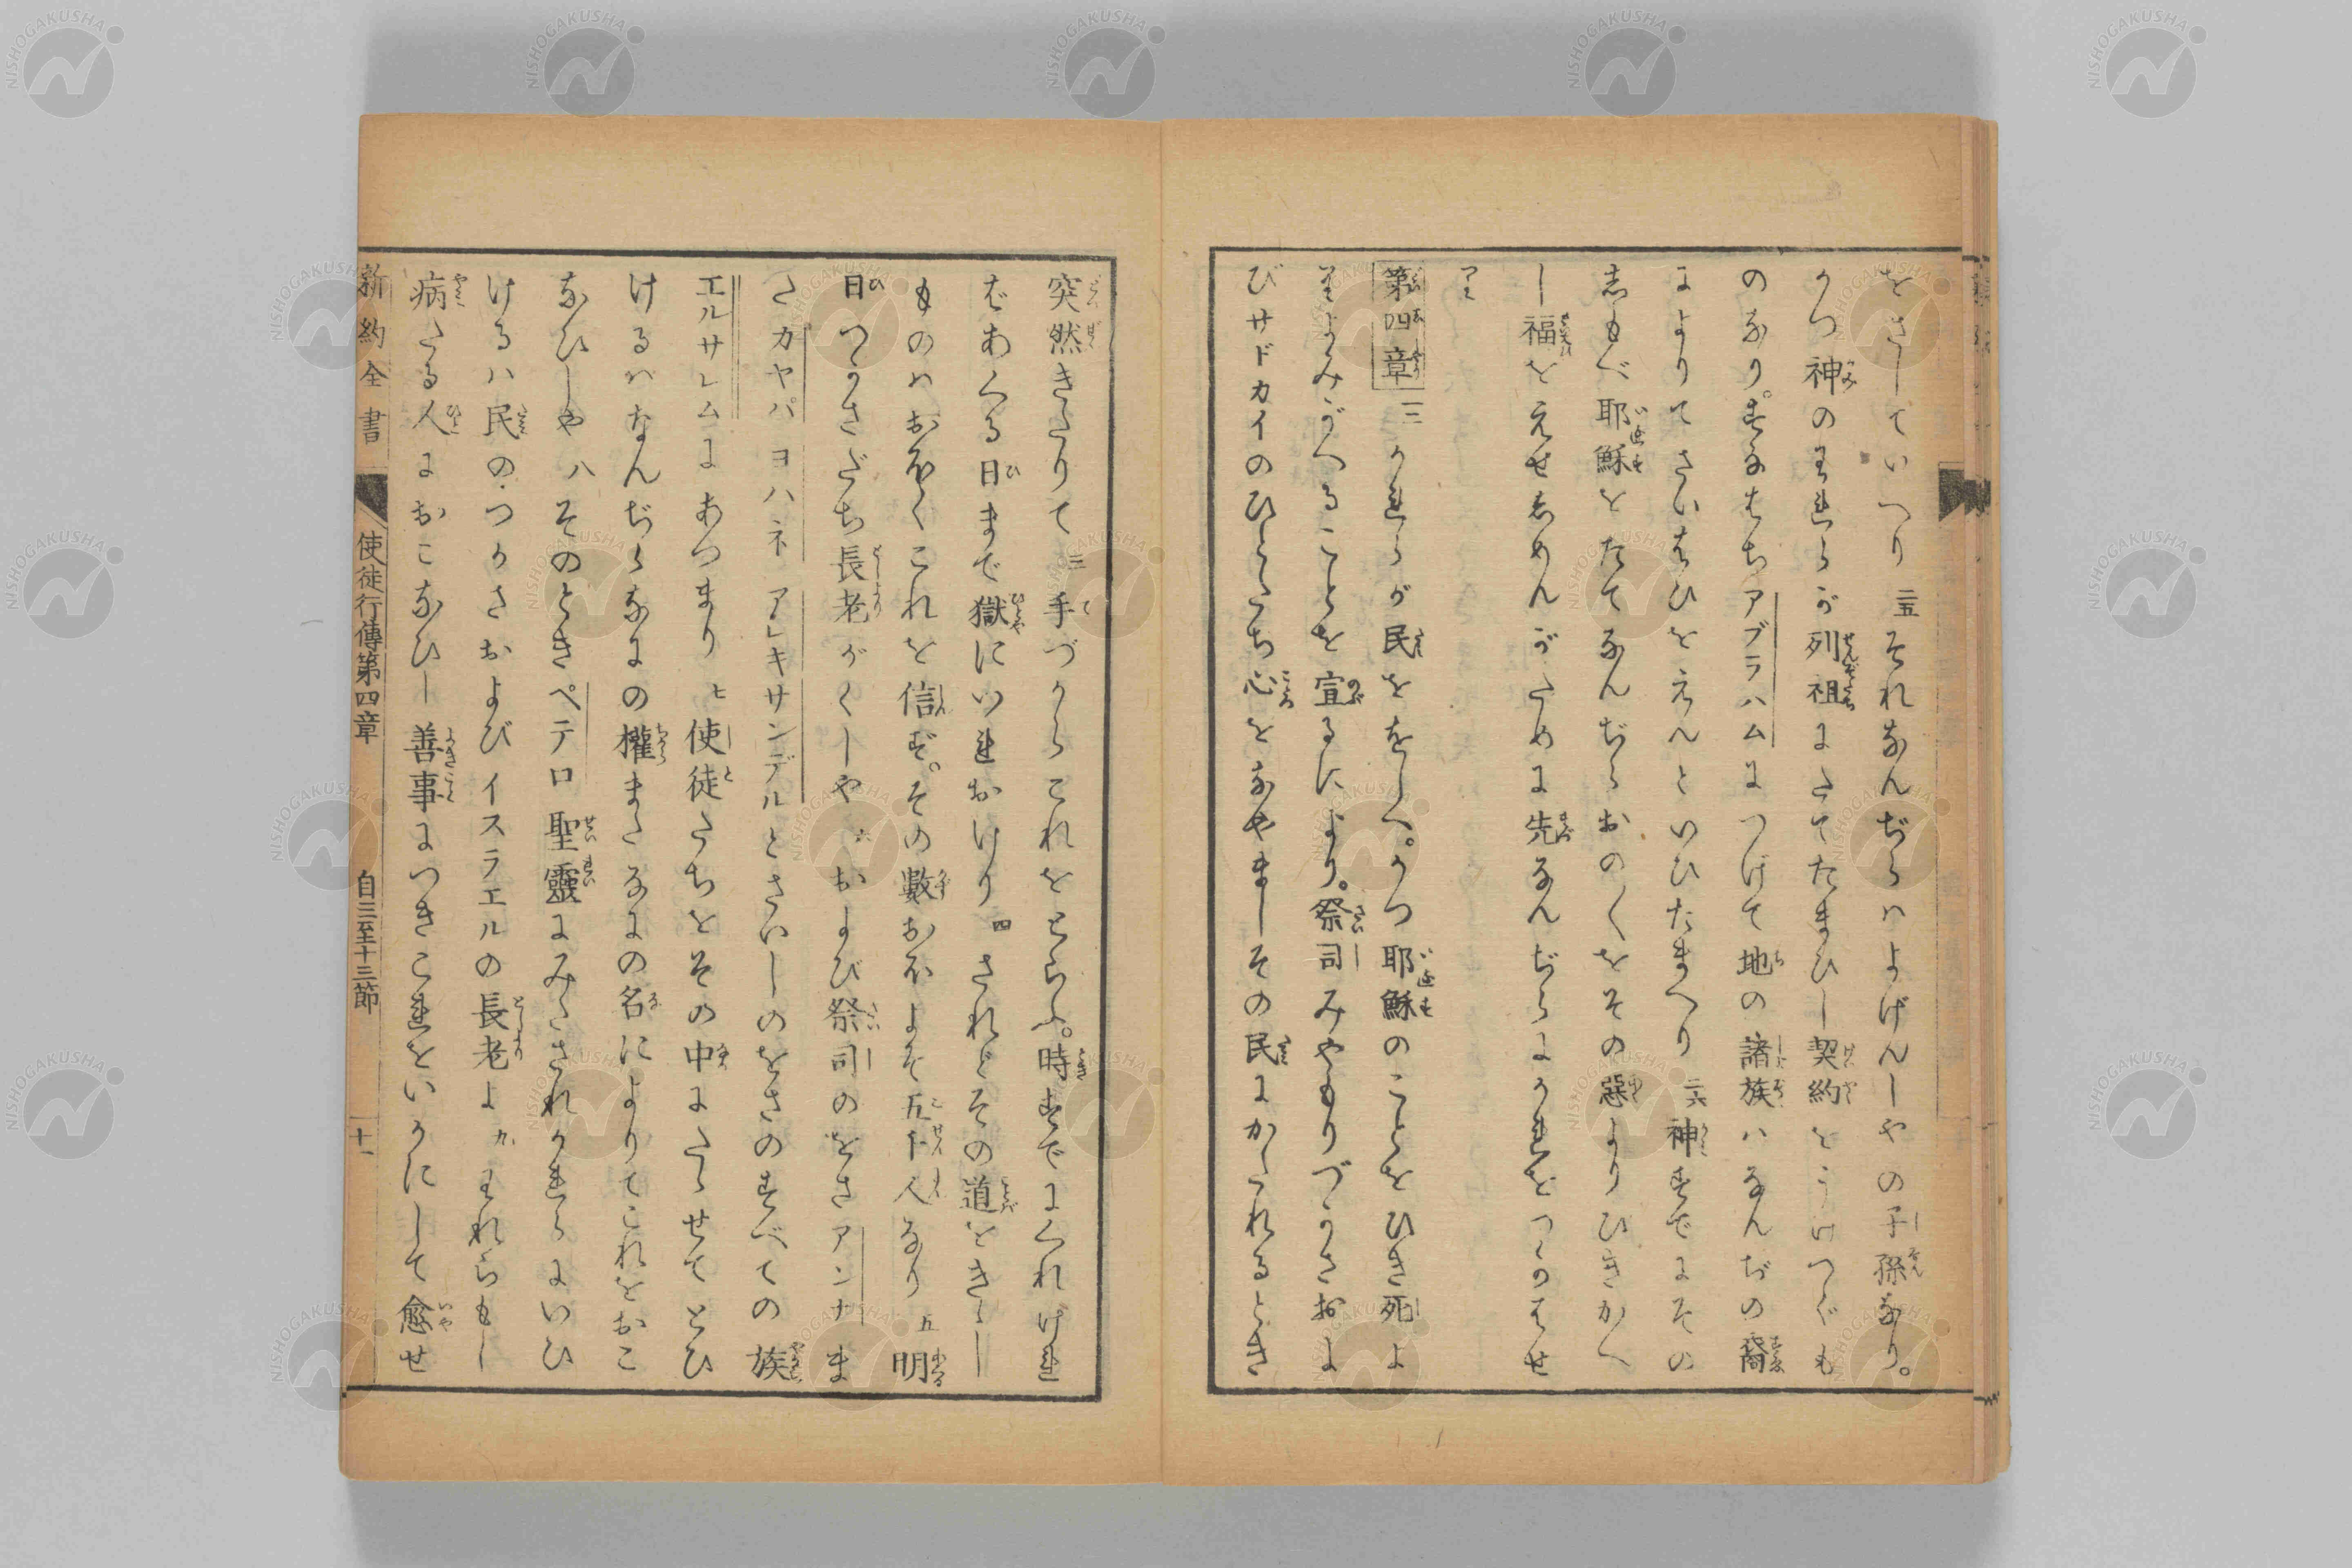 をさしていへり 二五 それなんぢらハよげんしやの子孫なり。
かつ神のわれらが列祖にたてたまひし契約をうけつぐも
のなり。すなはちアブラハムにつげて地の諸族ハなんぢの裔
によりてさいはひをえんといひたまへり 二六 神すでにその
しもべ耶穌をたてなんぢらおの〱をその惡よりひきかへ
し福をえせしめんがために先なんぢらにかれをつかはせ
り
第四章 一二 かれらが民ををしへ。かつ耶穌のことをひき死よ
りよみがへることを宣るにより。祭司みやもりづかさおよ
びサドカイのひとたち心をなやましその民にかたれるとき
突然きたりて 三 手づからこれをとらふ。時すでにくれければ
あくる日まで獄にいれおけり 四 されどその道をきゝし
ものハおほくこれを信ず。その數おほよそ五千人なり 五 明
日つかさだち長老がくしや 六 および祭司のをさアンナま
たカヤパ ヨハネ アレキサンデルとさいしのをさのすべての族
エルサレムにあつまり 七 使徒たちをその中にたゝせてとひ
けるハなんぢらなにの權またなにの名によりてこれをおこ
なひしや 八 そのときペテロ聖靈にみたされかれらにいひ
けるハ民のつかさおよびイスラエルの長老よ 九 われらもし
病たる人におこなひし善事につきこれをいかにして愈せ
新約全書 使徒行傳第四章 自三至十三節 十一
NISHOGAKUSHA